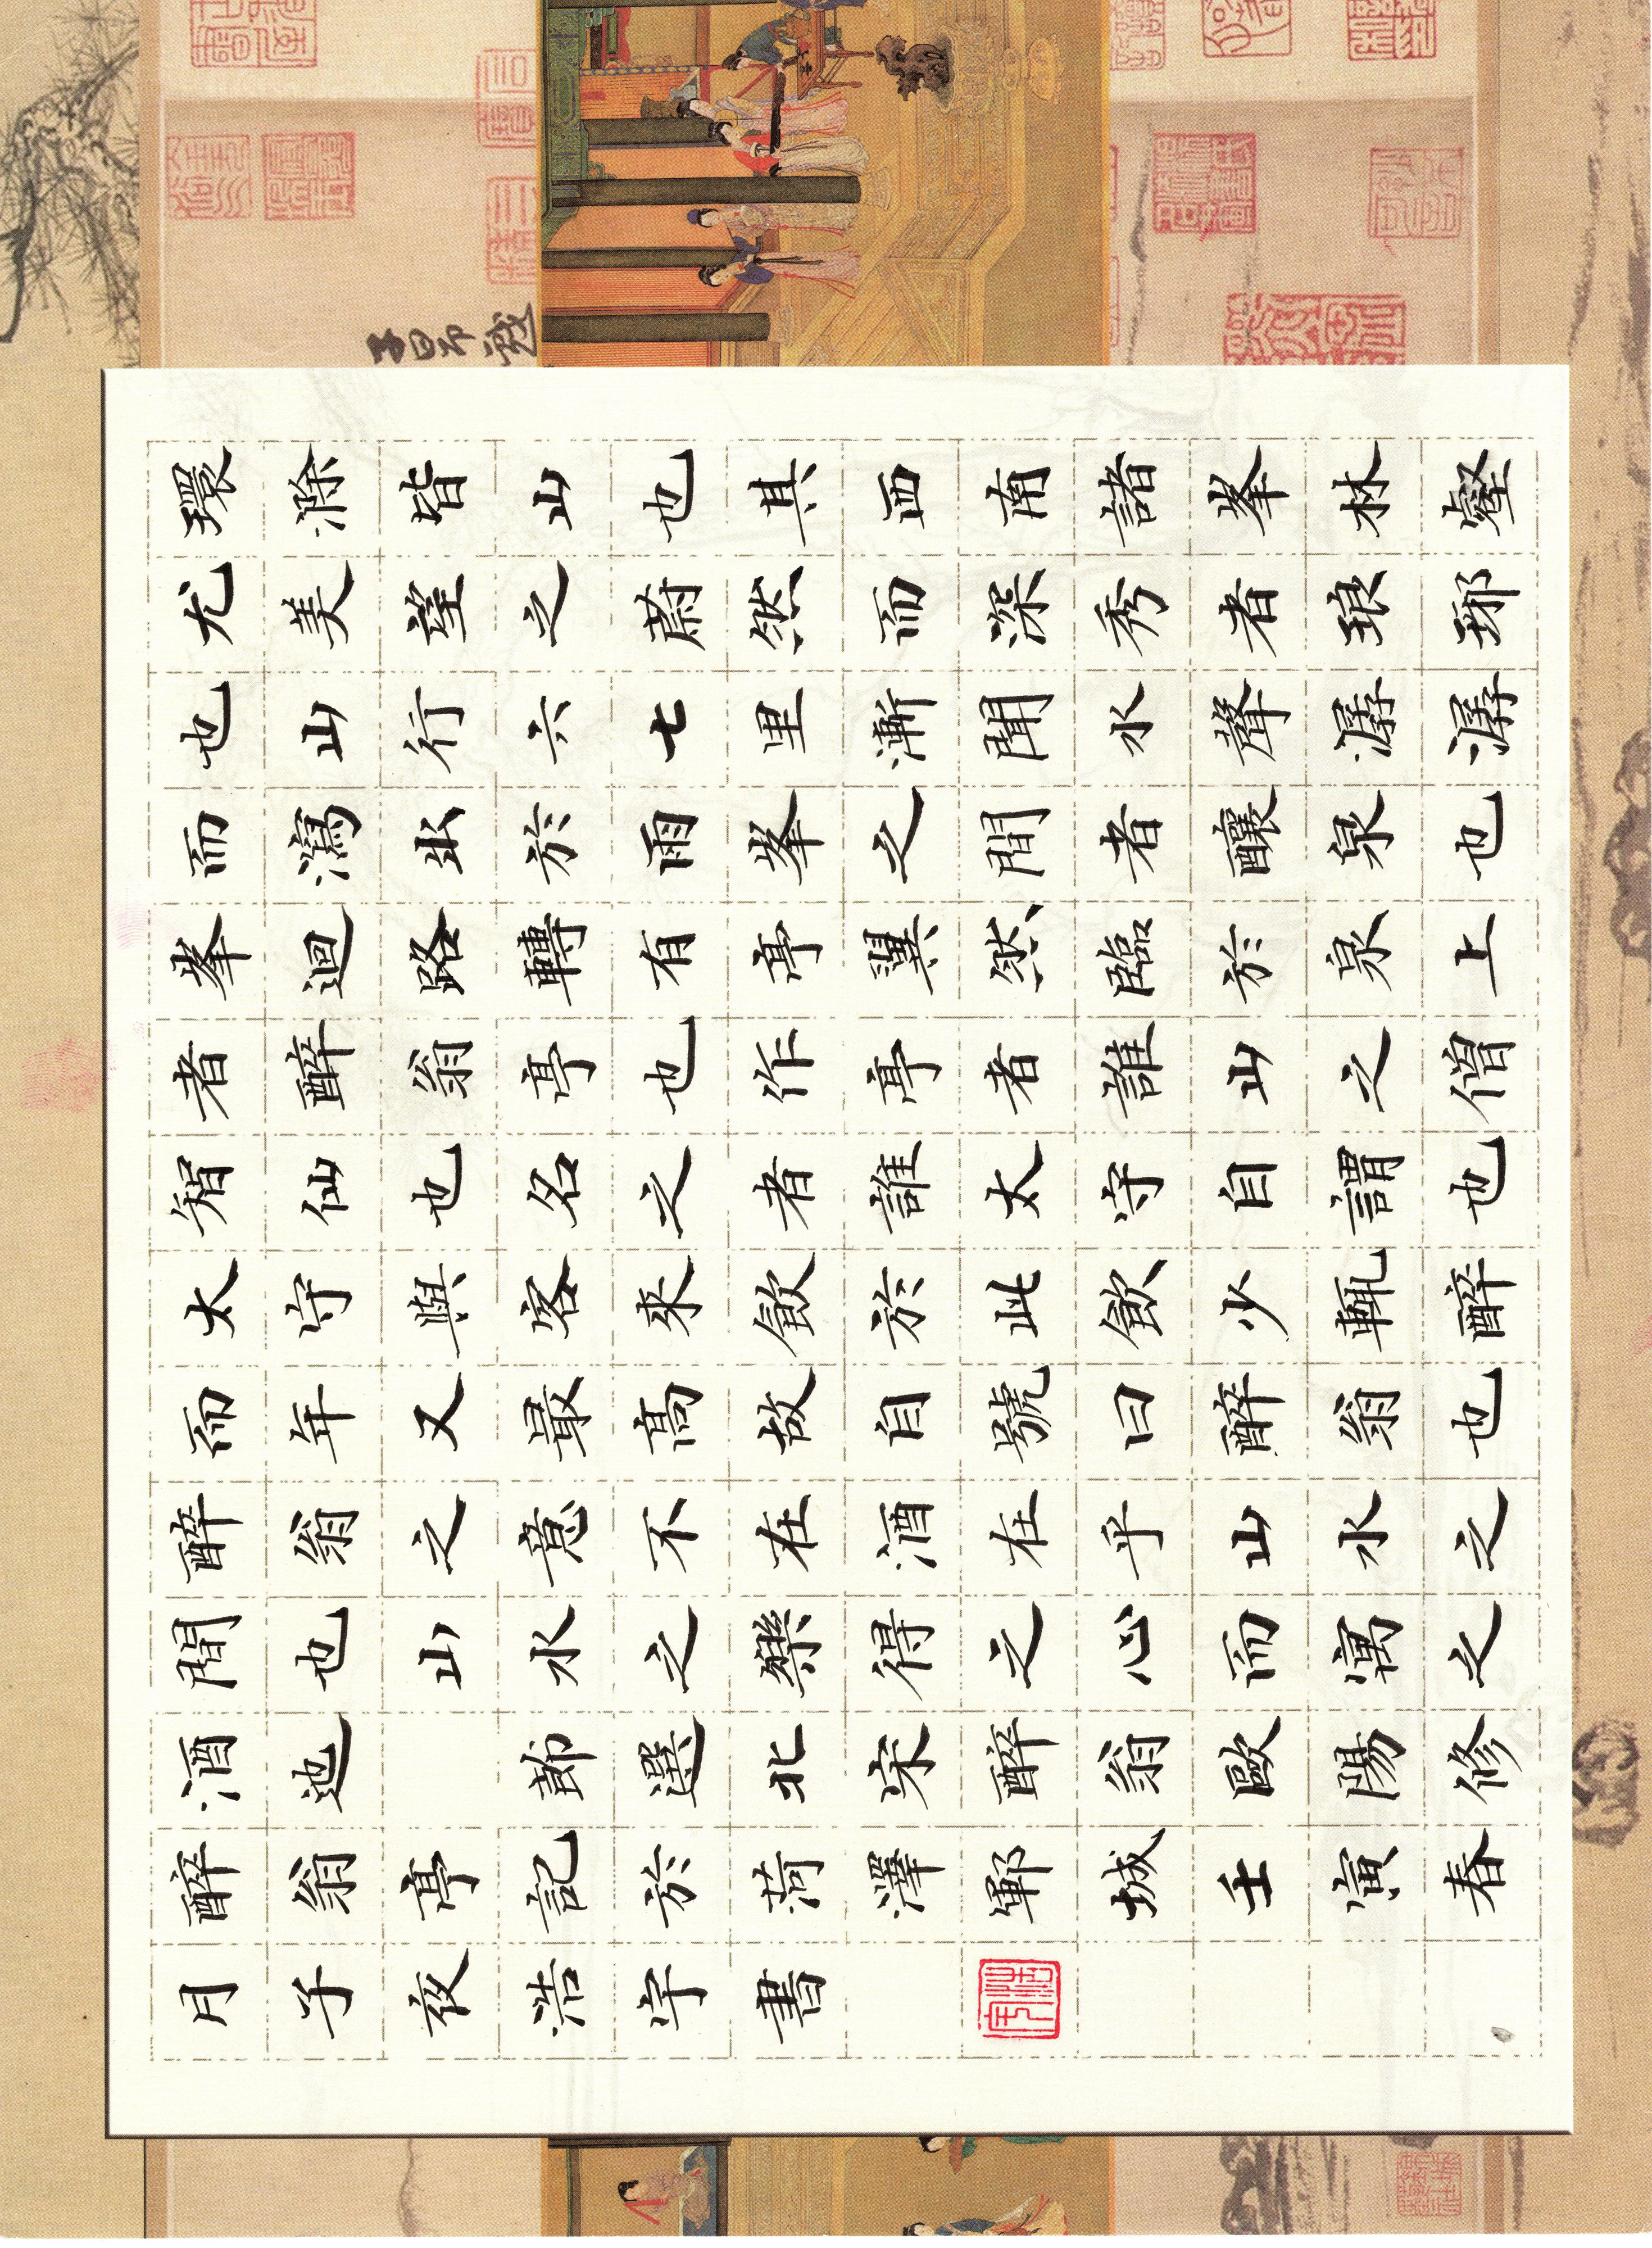 環滁皆山也其西南諸峯林壑
尤美望之蔚然而深秀者琅琊
也山行六七里漸聞水聲潺潺
而瀉出於雨峯之間者釀泉也
峯迴路轉有亭翼然臨於泉上
者醉翁亭也作亭者誰山之僧
智仙也名之者誰太守自謂也
太守與客來飲於此飲少輒醉
而年又最高故自號曰醉翁也
醉翁之意不在酒在乎山水之
間也山水之樂得之心而寓之
酒迆 節選北宋醉翁歐陽修
醉翁亭記於菏澤鄆城壬寅春
月子夜浩宇書